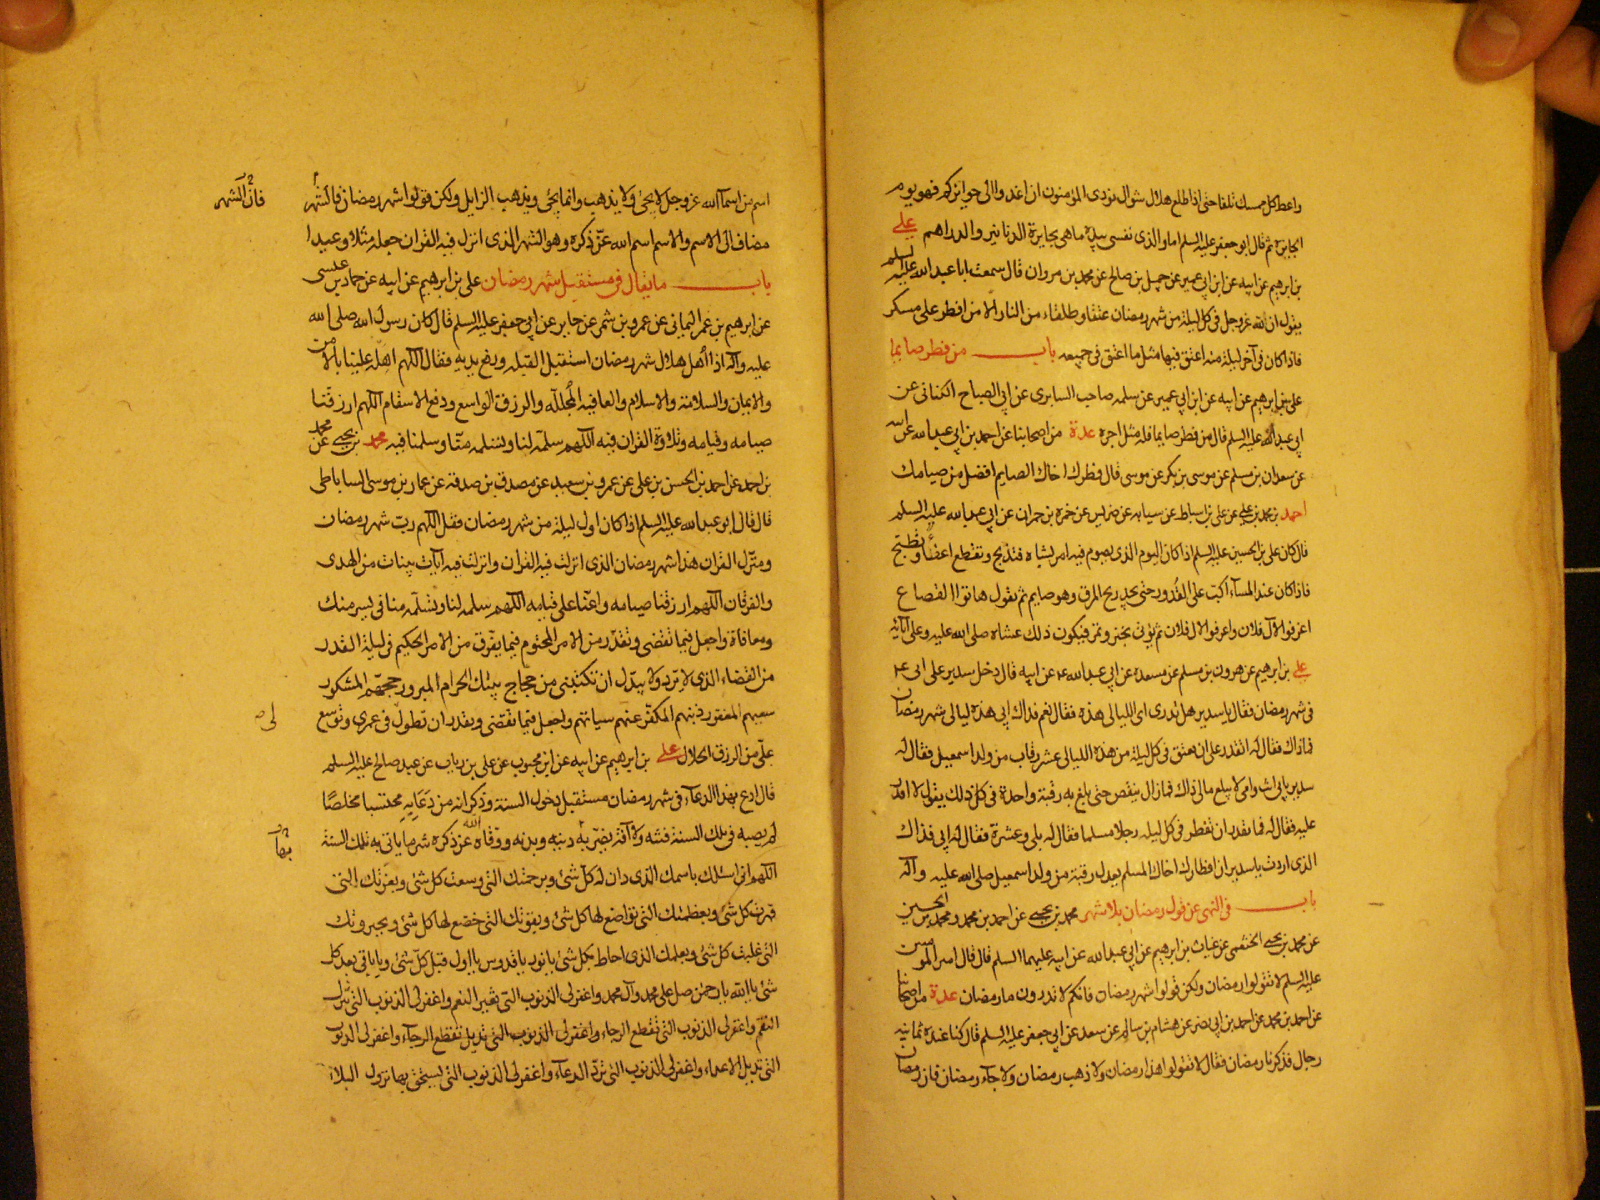 واعط كل ممسك تلفا حتى اذا طلع هلال شوال نودى المؤمنون ان اغدوا الى جوايزكم فهو يوم
الجايزة ثم قال ابو جعفر عليه السلم اما والذى نفسى بيده ما هى بجايزة الدنانير والدراهم علي
بن ابرهيم عن ابيه عن ابن ابى عمير عن جميل بن صالح عن محمد بن مروان قال سمعت ابا عبد الله عليه السلم
يقول ان لله عز وجل فى كل ليلة من شهر رمضان عتقا وطلقاء من النار الا من افطر على مسكر
فاذا كان فى آخر ليلة منه اعتق فيها مثل ما اعتق فى جميعه باب من فطر صايما
على بن ابرهيم عن ابيه عن ابن ابى عمير عن سلمه صاحب السابرى عن ابى الصباح الكنانى عن
ابى عبد الله عليه السلم قال من فطر صايما فله مثل اجره عدة من اصحابنا عن احمد بن ابى عبد الله عن ابيه
عن سعدان بن مسلم عن موسى بن بكر عن موسى قال فطرك اخاك الصايم افضل من صيامك
احمد بن محمد بن على عن على بن اسباط عن سيابه عن ضريس عن حمزه بن حمران عن ابى عبد الله عليه السلم
قال كان على بن الحسين عليه السلم اذا كان اليوم الذى يصوم فيه امر بشاه فتذبح وتقطع اعضاء وتطبخ
فاذا كان عند المساء اكبّ على القدور حتى يجد ريح المرق وهو صايم ثم يقول هاتوا القصاع
اغرفوا لآل فلان واغرفوا لآل فلان ثم يؤتى بخبز وتمر فيكون ذلك عشاه صلى الله عليه وعلى آبائه
علي بن ابرهيم عن هرون بن مسلم عن مسعده عن ابى عبد الله ع عن ابيه قال دخل سدير على ابى ع
فى شهر رمضان فقال يا سدير هل تدرى اى الليالى هذه فقال نعم فداك ابى هذه ليالى شهر رمضان
فما ذاك فقال له اتقدر على ان تعتق فى كل ليلة من هذه الليالى عشر رقاب من ولد اسمعيل فقال له
سدير بابى انت وامى لا يبلغ مالى ذاك فما زال ينقص حتى بلغ به رقبة واحدة فى كل ذلك يقول لا اقدر
عليه فقال له فما تقدر ان تفطر فى كل ليله رجلا مسلما فقال له بلى وعشرة فقال له ابى فذاك
الذى اردت يا سدير ان افطارك اخاك المسلم يعدل رقبة من ولد اسمعيل صلى الله عليه وآله
باب فى النهى عن قول رمضان بلا شهر محمد بن يحيى عن احمد بن محمد ومحمد بن الحسين
عن محمد بن يحيى الخثعمى عن غياث بن ابرهيم عن ابى عبد الله عن ابيه عليهما السلم قال قال امير المؤمنين
عليه السلم لا تقولوا رمضان ولكن قولوا شهر رمضان فانكم لا تدرون ما رمضان عدة من اصحابنا
عن احمد بن محمد عن احمد بن ابى نصر عن هشام بن سالم عن سعد عن ابى جعفر عليه السلم قال كنا عنده ثمانيه
رجال فذكرنا رمضان فقال لا تقولوا هذا رمضان ولا ذهب رمضان ولا جآء رمضان فان رمضان
اسم من اسمآء الله عز وجل لا يجئ ولا يذهب وانما يجئ ويذهب الزايل ولكن قولوا شهر رمضان فالشهر
فان الشهر
مضاف الى الاسم والاسم اسم الله عزّ ذكره وهو الشهر الذى انزل فيه القران جعله مثلا وعيدا
باب ما يقال فى مستقبل شهر رمضان على بن ابرهيم عن ابيه عن حماد بن عيسى
عن ابرهيم بن عمر اليمانى عن عمرو بن شمر عن جابر عن ابى جعفر عليه السلم قال كان رسول الله صلى الله
عليه وآله اذا اهل هلال شهر رمضان استقبل القبله ورفع يديه فقال اللهم اهلّه علينا بالامن
والايمان والسلامة والاسلام والعافيه المجلله والرزق الواسع ودفع الاسقام اللهم ارزقنا
صيامه وقيامه وتلاوة القران فيه اللهم سلمه لنا وتسلمه منّا وسلمنا فيه محمد بن يحيى عن محمد
بن احمد عن احمد بن الحسن بن على عن عمرو بن سعيد عن مصدق بن صدقة عن عمار بن موسى الساباطى
قال قال ابو عبد الله عليه السلم اذا كان اول ليلة من شهر رمضان فقل اللهم ربّ شهر رمضان
ومنزّل القران هذا شهر رمضان الذى انزلت فيه القران وانزلت فيه آيات بينات من الهدى
والفرقان اللهم ارزقنا صيامه واعنّا على قيامه اللهم سلمه لنا وتسلّمه منا فى يسر منك
ومعافاة واجعل فيما تقضى وتقدّر من الامر المحتوم فيما يفرّق من الامر الحكيم فى ليلة القدر
من القضاء الذى لا يردّ ولا يبدّل ان تكتبنى من حجاج بيتك الحرام المبرور حجهم المشكور
سعيهم المغفور ذنبهم المكفّر عنهم سيآتهم واجعل فيما تقضى وتقدر ان تطوّل فى عمرى وتوسع
علىّ من الرزق الحلال علي بن ابرهيم عن ابيه عن ابن محبوب عن على بن رياب عن عبد صالح عليه السلم
قال ادع بهذا الدعاء فى شهر رمضان مستقبل دخول السنة وذكر انه من دعا به محتسبا مخلصًا
لم يصبه فى تلك السنة فتنه ولا آفة يضرّ به دينه وبدنه ووقاه الله عز ذكره شر ما ياتى به تلك السنة
اللهم انى اسئلك باسمك الذى دان له كلّ شئ وبرحمتك التى وسعت كل شئ وبعزتك التى
قهرت كل شئ وبعظمتك التى تواضع لها كل شئ وبقوتك التى خضع لها كل شئ وبجبروتك
التى غلبت كل شئ وبعلمك الذى احاط بكل شئ يا نور يا قدوس يا اول قبل كلّ شئ ويا باقى بعد كل
شئ يا الله يا رحمن صل على محمد وآل محمد واغفر لى الذنوب التى تغير النعم واغفر لى الذنوب التى تنزل
النقم واغفر لى الذنوب التى تقطع الرجاء واغفر لى الذنوب التى تديل تقطع الرجآء واغفر لى الذنوب
التى تديل الاعداء واغفر لى الذنوب التى تردّ الدعآء واغفر لى الذنوب التى يستحق بها نزول البلاء